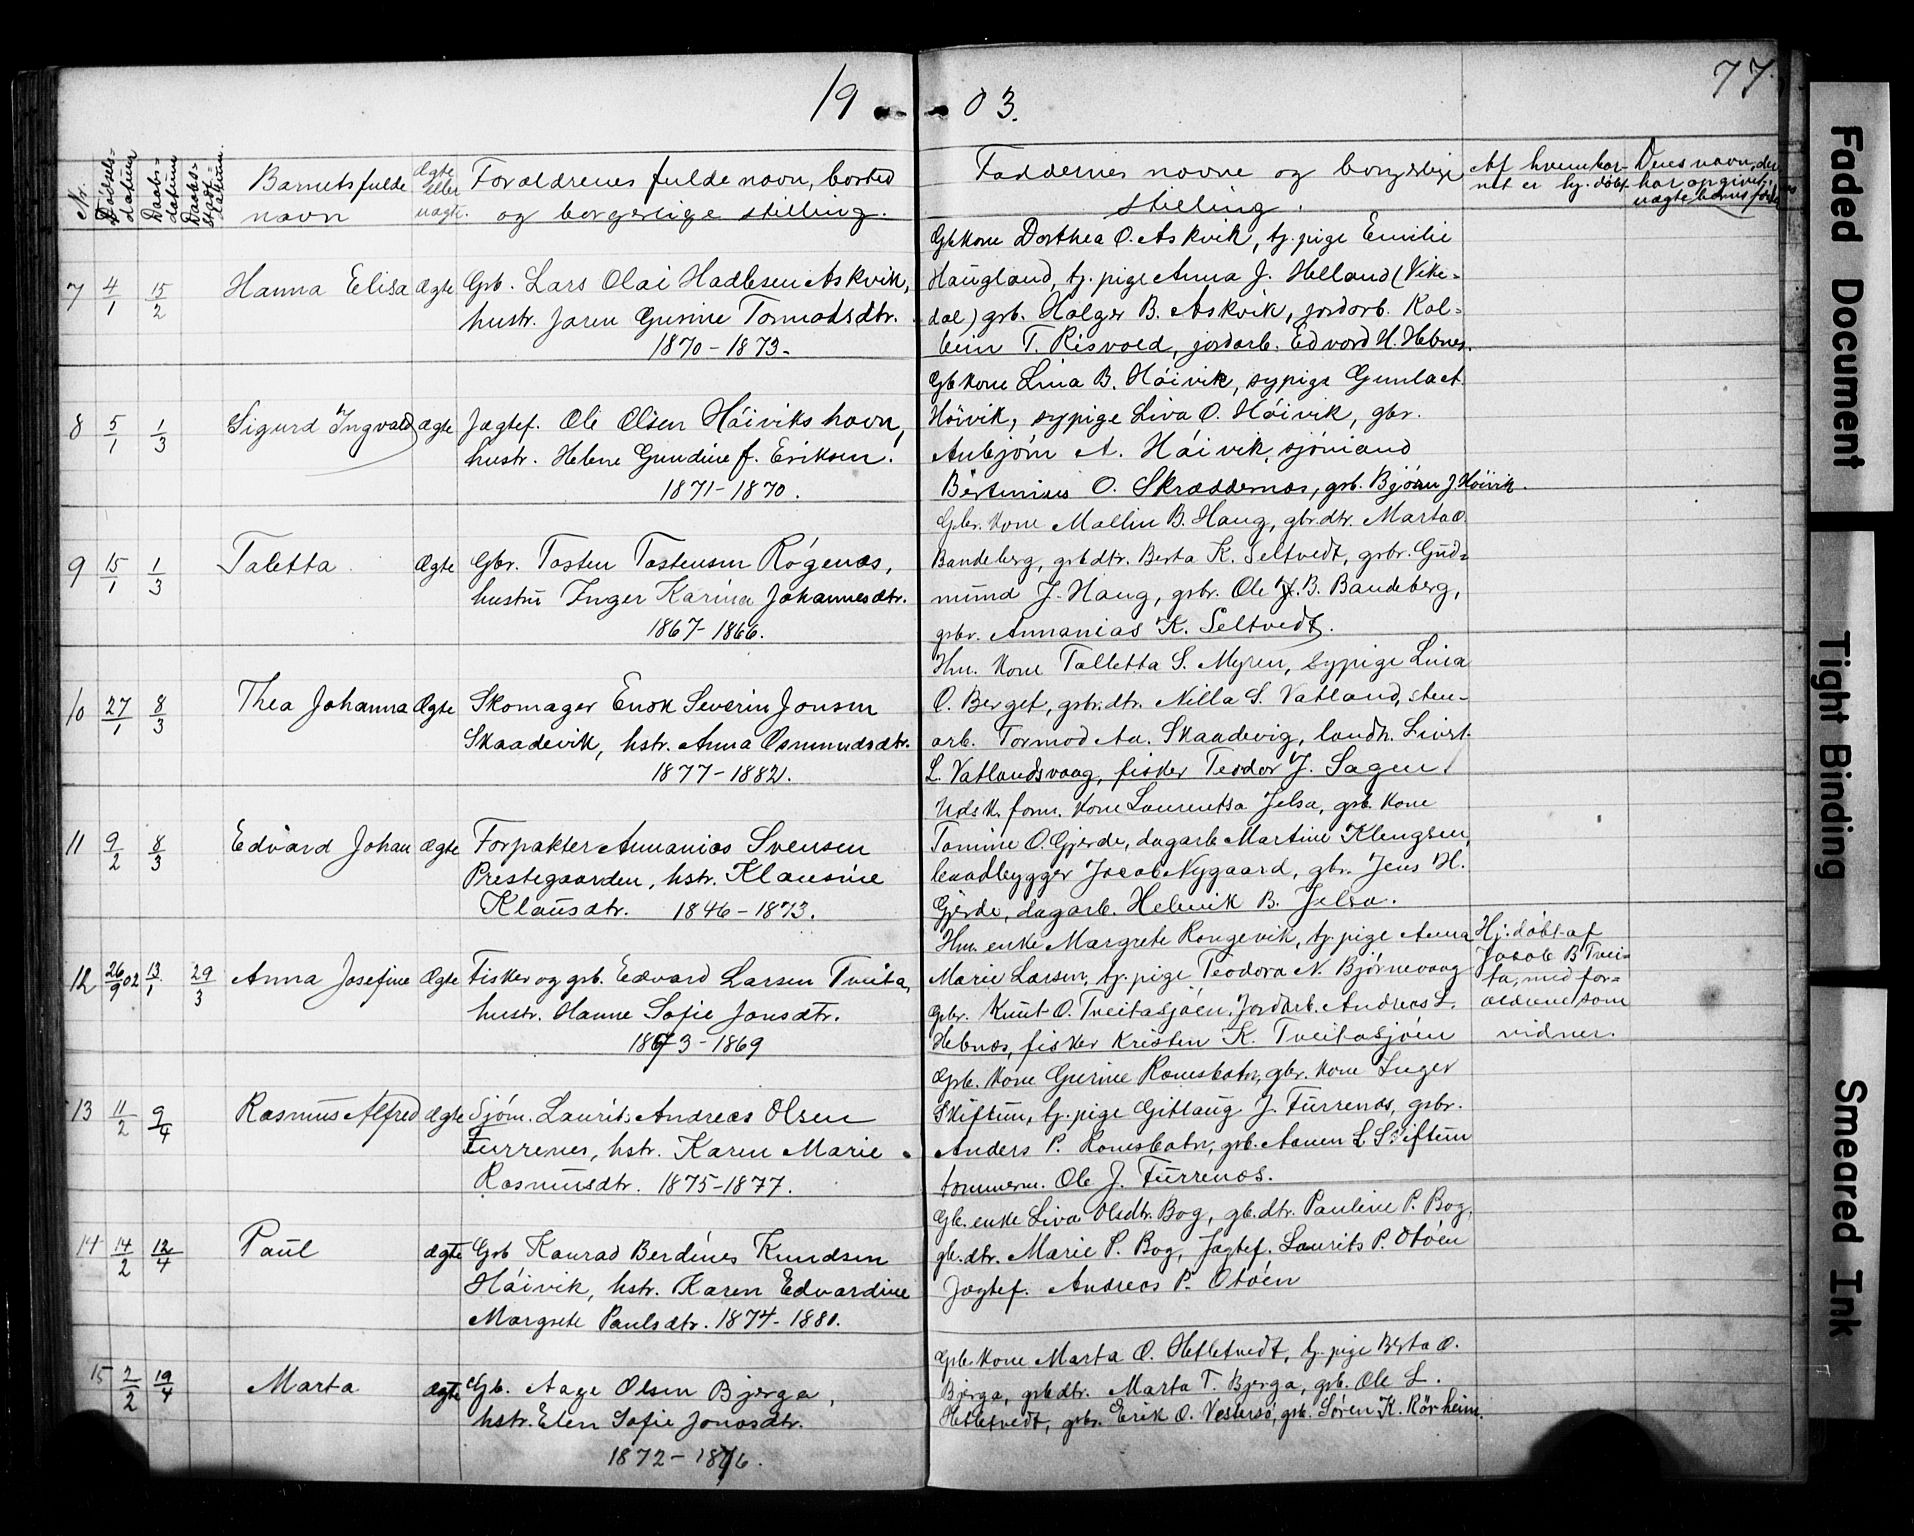 19 03.
77.
Nr.
Födsels-
datum
Daabs-
datum
Barnets fulde
navn
Ægte
eller
uægte.
Forældrenes fulde navn, bosted
og borgerlige stilling.
Faddernes navne og borgerlige
stilling.
Af hvem bar-
net er hj. döbt.
Dens navn, der
har opgivet
uægte barns fader
7 4/1 15/2 Hanna Elisa Ægte Gsb. Lars Olai Hadlesen Askvik,
hustr. Jaren Gurine Tormodsdtr.
1870-1873.
Gb kone Dorthea O. Askvik, tj. pige Emilie
Haugland, tj. pige Anna J. Helland (Vike-
dal) gsb. Holger B. Askvik, jordarb. Kol-
bein T. Risvold, jordarb. Edvard H. Hebnes.
8 5/1 1/3 Sigurd Ingvald Ægte Jægtef. Ole Olsen Höivikshavn,
hustr. Helene Gundine f. Eriksen.
1871-1870.
Gb kone Lina B. Höivik, sypige Gunla A.
Höivik, sypige Liva O. Höivik, gbr.
Anbjörn A. Höivik, sjömand
O. Skræddernæs, gsb. Björn J. Höivik.
9 15/1 1/3 Taletta. Ægte Gbr. Tosten Tostensen Rögenæs,
hustru Inger Karina Johannesdtr.
1867-1866.
Gbr. kone Mallin B. Haug, gbr.dtr. Marta O.
Bandeberg, gsbdtr. Berta K. Seltvedt, gsbr. Gud-
mund J. Haug, gsbr. Ole B. Bandeberg,
gsbr. Annanias K. Seltvedt.
10 27/1 8/3 Thea Johanna Ægte Skomager Enok Severin Jonsen
Skaadevik, hstr. Anna Osmundsdtr.
1877-1882.
Hm. kone Talletta S. Myren, sypige Lina
O. Berget, gsbr.dtr. Nilla S. Vatland, sten-
arb. Tormod Aa. Skaadevig, landh. Sivert
L. Vatlandsvaag, fisker Teodor J. Sagen.
11 9/2 8/3 Edvard Johan Ægte Forpakter Annanias Svensen
Prestegaarden, hstr. Klausine
Klausdtr. 1846-1873.
Udsk. form. kone Laurentsa Jelsa, gsb. kone
Tomine O. Gjerde, dagarb. Martine Klengsen,
baadbygger Jacob Nygaard, gbr. Jens H.
Gjerde, dagarb. Helmik B. Jelsa.
12 26/9 02 13/1 29/3 Anna Josefine Ægte Fisker og gsb. Edvard Larsen Tveita,
hustr. Hanne Sofie Jonsdtr.
1873-1869
Hm. enke Margrete Rongevik, tj. pige Anna
Marie Larsen, tj. pige Teodora N. Björnevaag
gsbr. Knut O. Tveitasjöen, Jordarb. Andreas L.
Hebnæs, fisker Kristen K. Tveitasjöen
Hj. döbt af
Jacob B Tvei-
ta, med for-
ældrene som
vidner.
13 11/2 9/4 Rasmus Alfred Ægte Sjöm. Laurits Andreas Olsen
Furrenes, hstr. Karen Marie
Rasmusdtr. 1875-1877.
Gsb. kone Gurine Ramsbotn, gbr. kone Inger
Skiftun, tj. pige Gitlaug J. Furrenæs, gsbr.
Anders P. Ramsbotn, gsb. L. Skiftun
tömmerm. Ole J. Furrenæs.
14 14/2 12/4 Paul Ægte Gsb Konrad Berdines Knudsen
Höivik, hstr. Karen Edvardine
Margrete Paulsdtr. 1874-1880.
Gb. enke Liva Olsdtr. Bog, gb.dtr. Pauline P. Bog,
gb.dtr. Marie P. Bog, Jægtef. Laurits P. Otöen
Jægtef. Andreas P. Otöen
15 2/2 19/4 Marta Ægte Gb. Aage Olsen Bjerga,
hstr. Elen Sofie Jonasdtr.
1872-1876.
Gsb. kone Marta O. Hetletvedt, tj. pige Berta O.
Bjerga, gsb.dtr. Marta T. Bjerga, gsb. Ole L.
Hetletvedt, gsbr. Erik O. Vestersö, gsb. Sören K. Rörheim.
Faded Document
Tight Binding
Smeared Ink